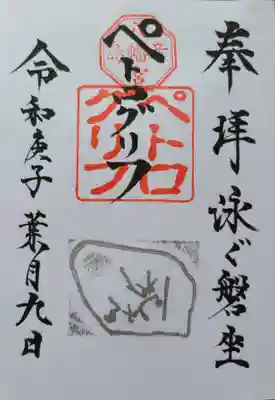 奉拝 泳ぐ磐座
ペトログリフ
ペトロ
グリフ
令和庚子 葉月九日